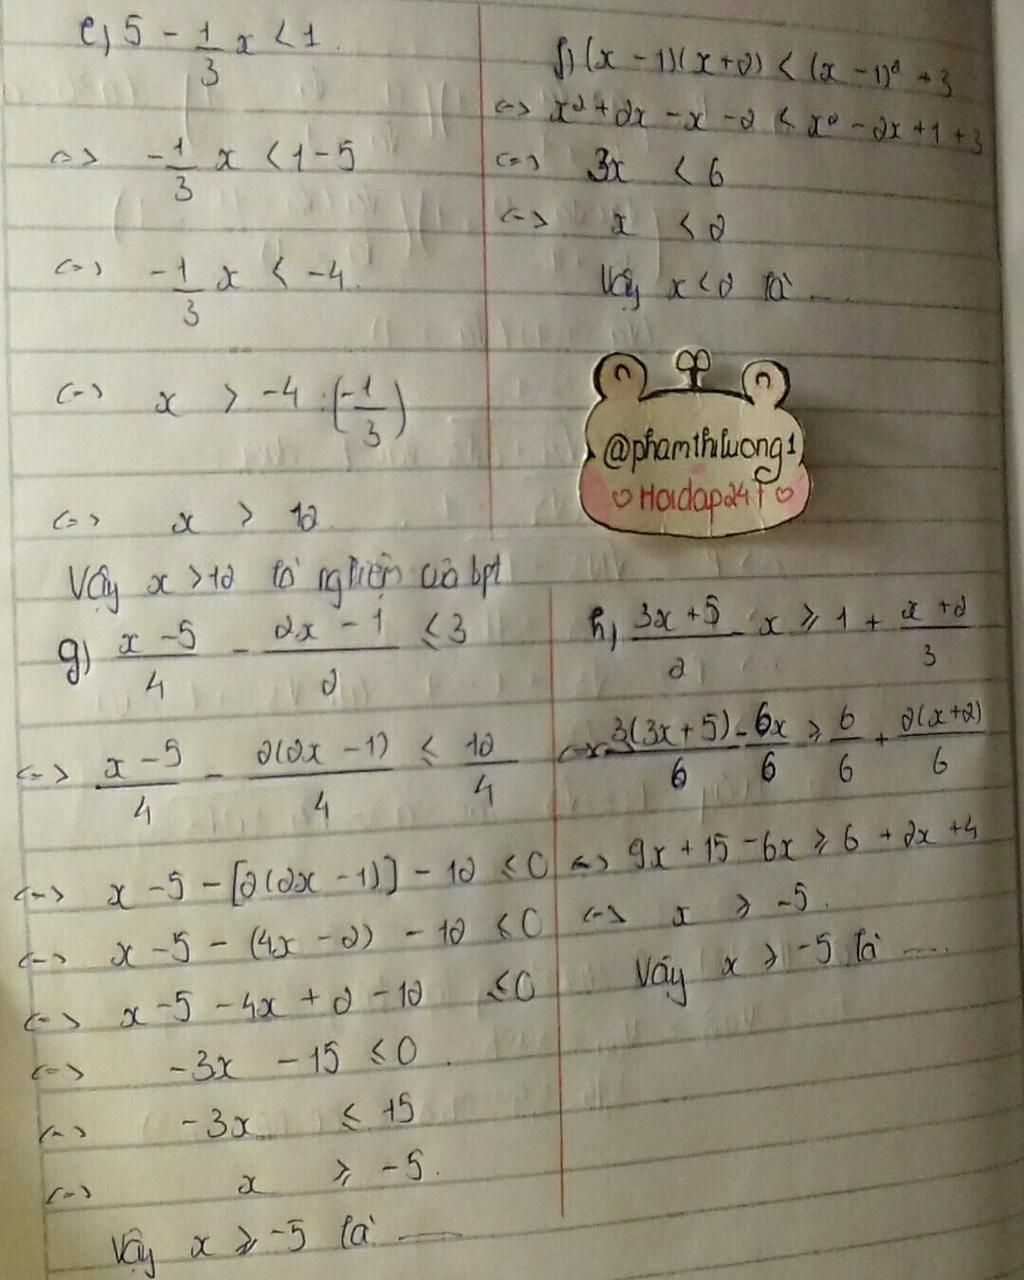 e) 5 - 1/3 x < 1
<=> -1/3 x < 1 - 5
<=> -1/3 x < -4
<=> x > -4 : (-1/3)
<=> x > 12
Vậy x > 12 là nghiệm của bpt
f) (x - 1)(x + 2) < (x - 1)² + 3
<=> x² + 2x - x - 2 < x² - 2x + 1 + 3
<=> 3x < 6
<=> x < 2
Vậy x < 2 là ...
@phamthiluong1
♡ Hoidap247 ♡
g) (x - 5)/4 - (2x - 1)/2 ≤ 3
<=> (x - 5)/4 - 2(2x - 1)/4 ≤ 12/4
<=> x - 5 - [2(2x - 1)] - 12 ≤ 0
<=> x - 5 - (4x - 2) - 12 ≤ 0
<=> x - 5 - 4x + 2 - 12 ≤ 0
<=> -3x - 15 ≤ 0
<=> -3x ≤ +15
<=> x ≥ -5.
Vậy x ≥ -5 là ...
h) (3x + 5)/2 - x ≥ 1 + (x + 2)/3
<=> 3(3x + 5)/6 - 6x/6 ≥ 6/6 + 2(x + 2)/6
<=> 9x + 15 - 6x ≥ 6 + 2x + 4
<=> x ≥ -5.
Vậy x ≥ -5 là ....